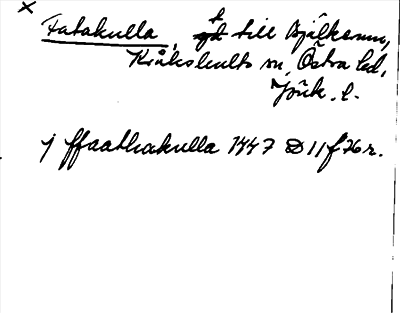 ×
Fatakulla, gd till Bjälkerum,
Kråkshults sn, Östra hd,
Jönk. l.
j ffaathakulla 1447 D 11 f 76 r.